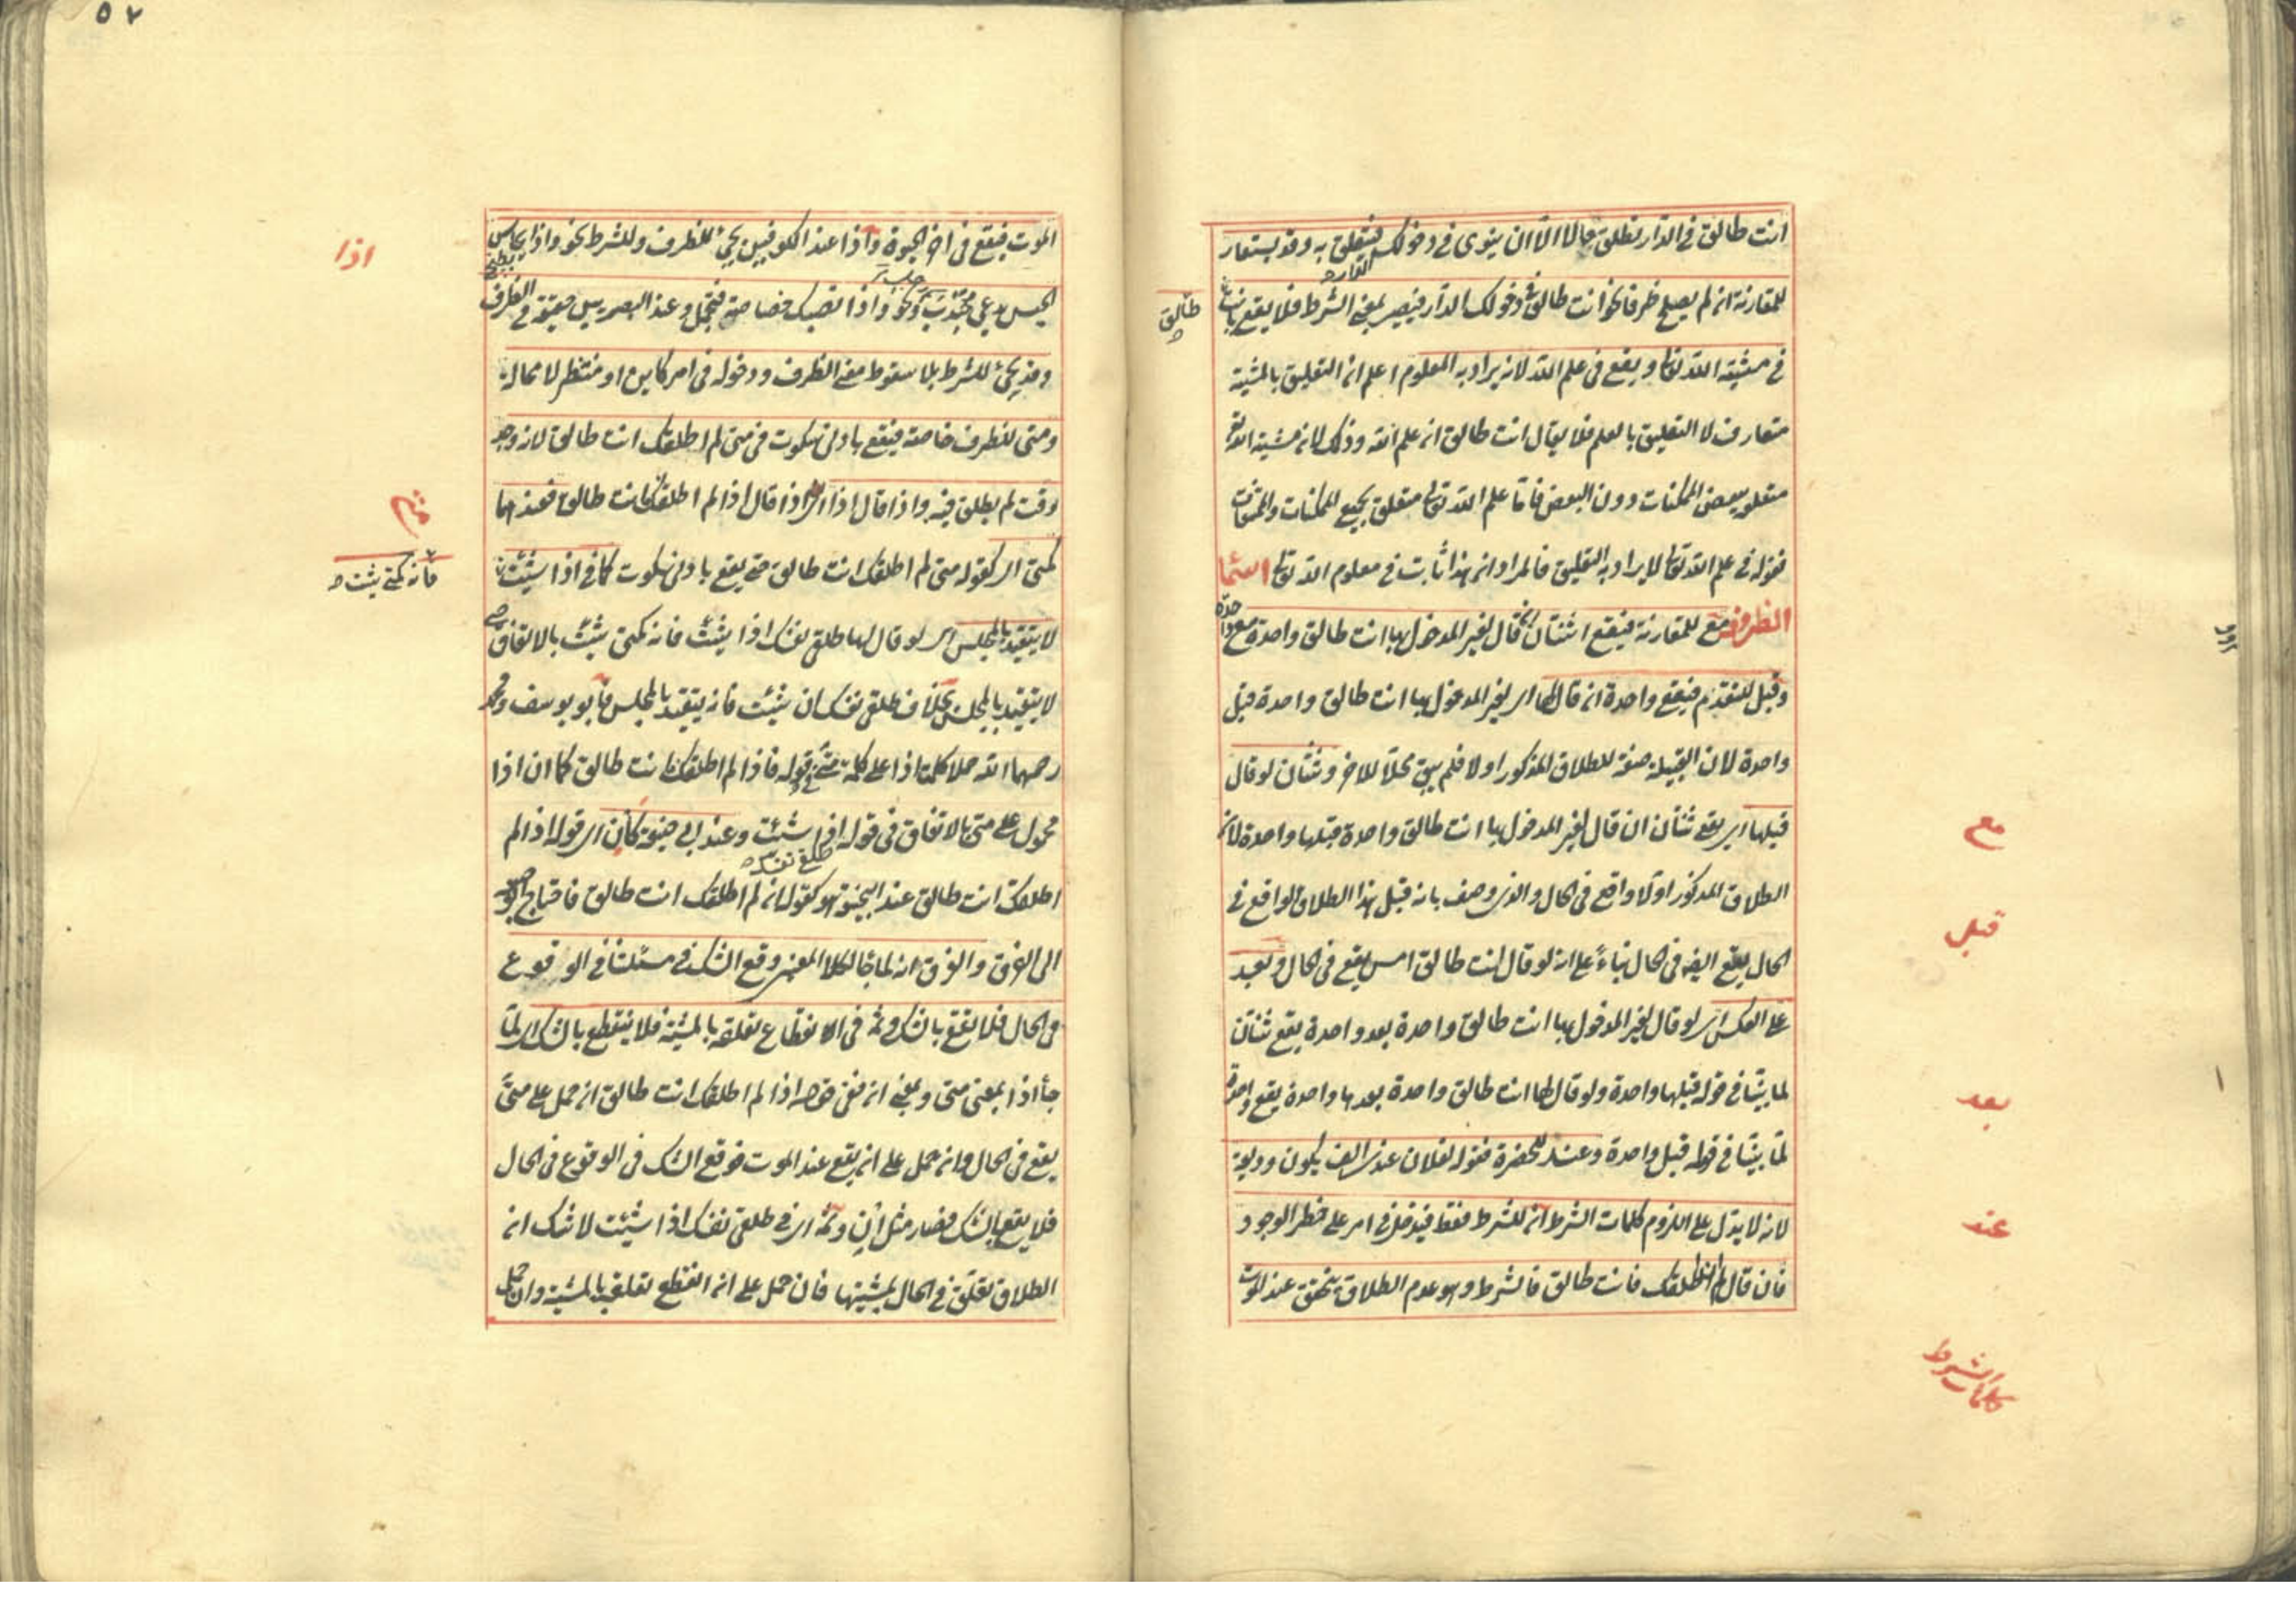 انت طالق في الدار تطلق حالا الا ان ينوى في دخولك فيتعلق به وقد يستعار
للمقارنة ان لم يصلح ظرفا نحو انت طالق في دخولك الدار فيصير بمعنى الشرط فلا يقع بانت
طالق
في مشية الله تعا ويقع في علم الله لانه يراد به المعلوم اعلم ان التعليق بالمشية
متعارف لا التعليق بالعلم فلا يقال انت طالق ان علم الله وذلك لان مشية الله تعا
متعلق ببعض الممكنات دون البعض فاما علم الله تعا متعلق بجميع الممكنات والممتنعات
فقوله في علم الله تعا لا يراد به التعليق فالمراد ان هذا ثابت في معلوم الله تعا اسماء
الظروف مع للمقارنة فيقع اثنتان ان قال لغير المدخول بها انت طالق واحدة مع واحدة
وقبل للتقدم فيقع واحدة ان قال لها اى لغير المدخول بها انت طالق واحدة قبل
واحدة لان القبلية صفة للطلاق المذكور اولا فلم يبق محلا للاخر وثنتان لو قال
قبلها اى يقع ثنتان ان قال لغير المدخول بها انت طالق واحدة قبلها واحدة لان
الطلاق المذكور اولا واقع في الحال والذى وصف بانه قبل هذا الطلاق الواقع في
الحال يقع ايضا في الحال بناء على انه لو قال انت طالق امس يقع في الحال وبعد
على العكس اى لو قال لغير المدخول بها انت طالق واحدة بعد واحدة يقع ثنتان
لما بينا في قوله قبلها واحدة ولو قال لها انت طالق واحدة بعدها واحدة يقع واحدة
لما بينا في قوله قبل واحدة وعند للحضرة فقوله لفلان عندى الف يكون وديعة
لانه لا يدل على اللزوم كلمات الشرط ان للشرط فقط فيدخل في امر على خطر الوجود
فان قال ان لم اطلقك فانت طالق فالشرط وهو عدم الطلاق يتحقق عند الموت
مع
قبل
بعد
عند
كلمات الشرط
٥٧
الموت فيقع في اخر الحيوة واذا عند الكوفيين يجئ للظرف وللشرط نحو واذا يحاس
الحيس يدعى جندب ونحو واذا تصبك خصاصة فتجمل وعند البصريين حقيقة في الظرف
وقد يجئ للشرط بلا سقوط معنى الظرف ودخوله في امر كاين او منتظر لا محالة
ومتى للظرف خاصة فيقع بادنى سكوت في متى لم اطلقك انت طالق لانه وجد
وقت لم يطلق فيه واذا قال اذا قال اذا لم اطلقك انت طالق فعندهما
كمتى اى كقوله متى لم اطلقك انت طالق حتى يقع بادنى سكوت كما في اذا شئت
لا يتقيد بالمجلس اى لو قال لها طلقى نفسك اذا شئت فانه كمتى شئت بالاتفاق حتى
لا يتقيد بالمجلس بخلاف طلقى نفسك ان شئت فانه يتقيد بالمجلس فابو يوسف ومحمد
رحمهما الله حملا كلمة اذا على كلمة متى في قوله فاذا لم اطلقك انت طالق كما ان اذا
محمول على متى بالاتفاق في قوله طلقى نفسك اذا شئت وعند ابى حنيفة كان اى قوله اذا لم
اطلقك انت طالق عند ابى حنيفة هو كقوله ان لم اطلقك انت طالق فاحتاج ابو حنيفة
الى الفرق والفرق انه لما جا لكلا المعنيين وقع الشك في مسئلتنا في الوقوع
في الحال فلا يقع بالشك وثمة في انقطاع تعلقه بالمشية فلا ينقطع بالشك اى لما
جأ اذا بمعنى متى وبمعنى ان ففى قوله اذا لم اطلقك انت طالق ان حمل على متى
يقع في الحال وان حمل على ان يقع عند الموت فوقع الشك في الوقوع في الحال
فلا يقع بالشك فصار مثل ان وثمة اى في طلقى نفسك اذا شئت لا شك ان
الطلاق تعلق في الحال بمشيتها فان حمل على ان انقطع تعلقه بالمشية وان حمل
اذا
فانه كمتى شئت